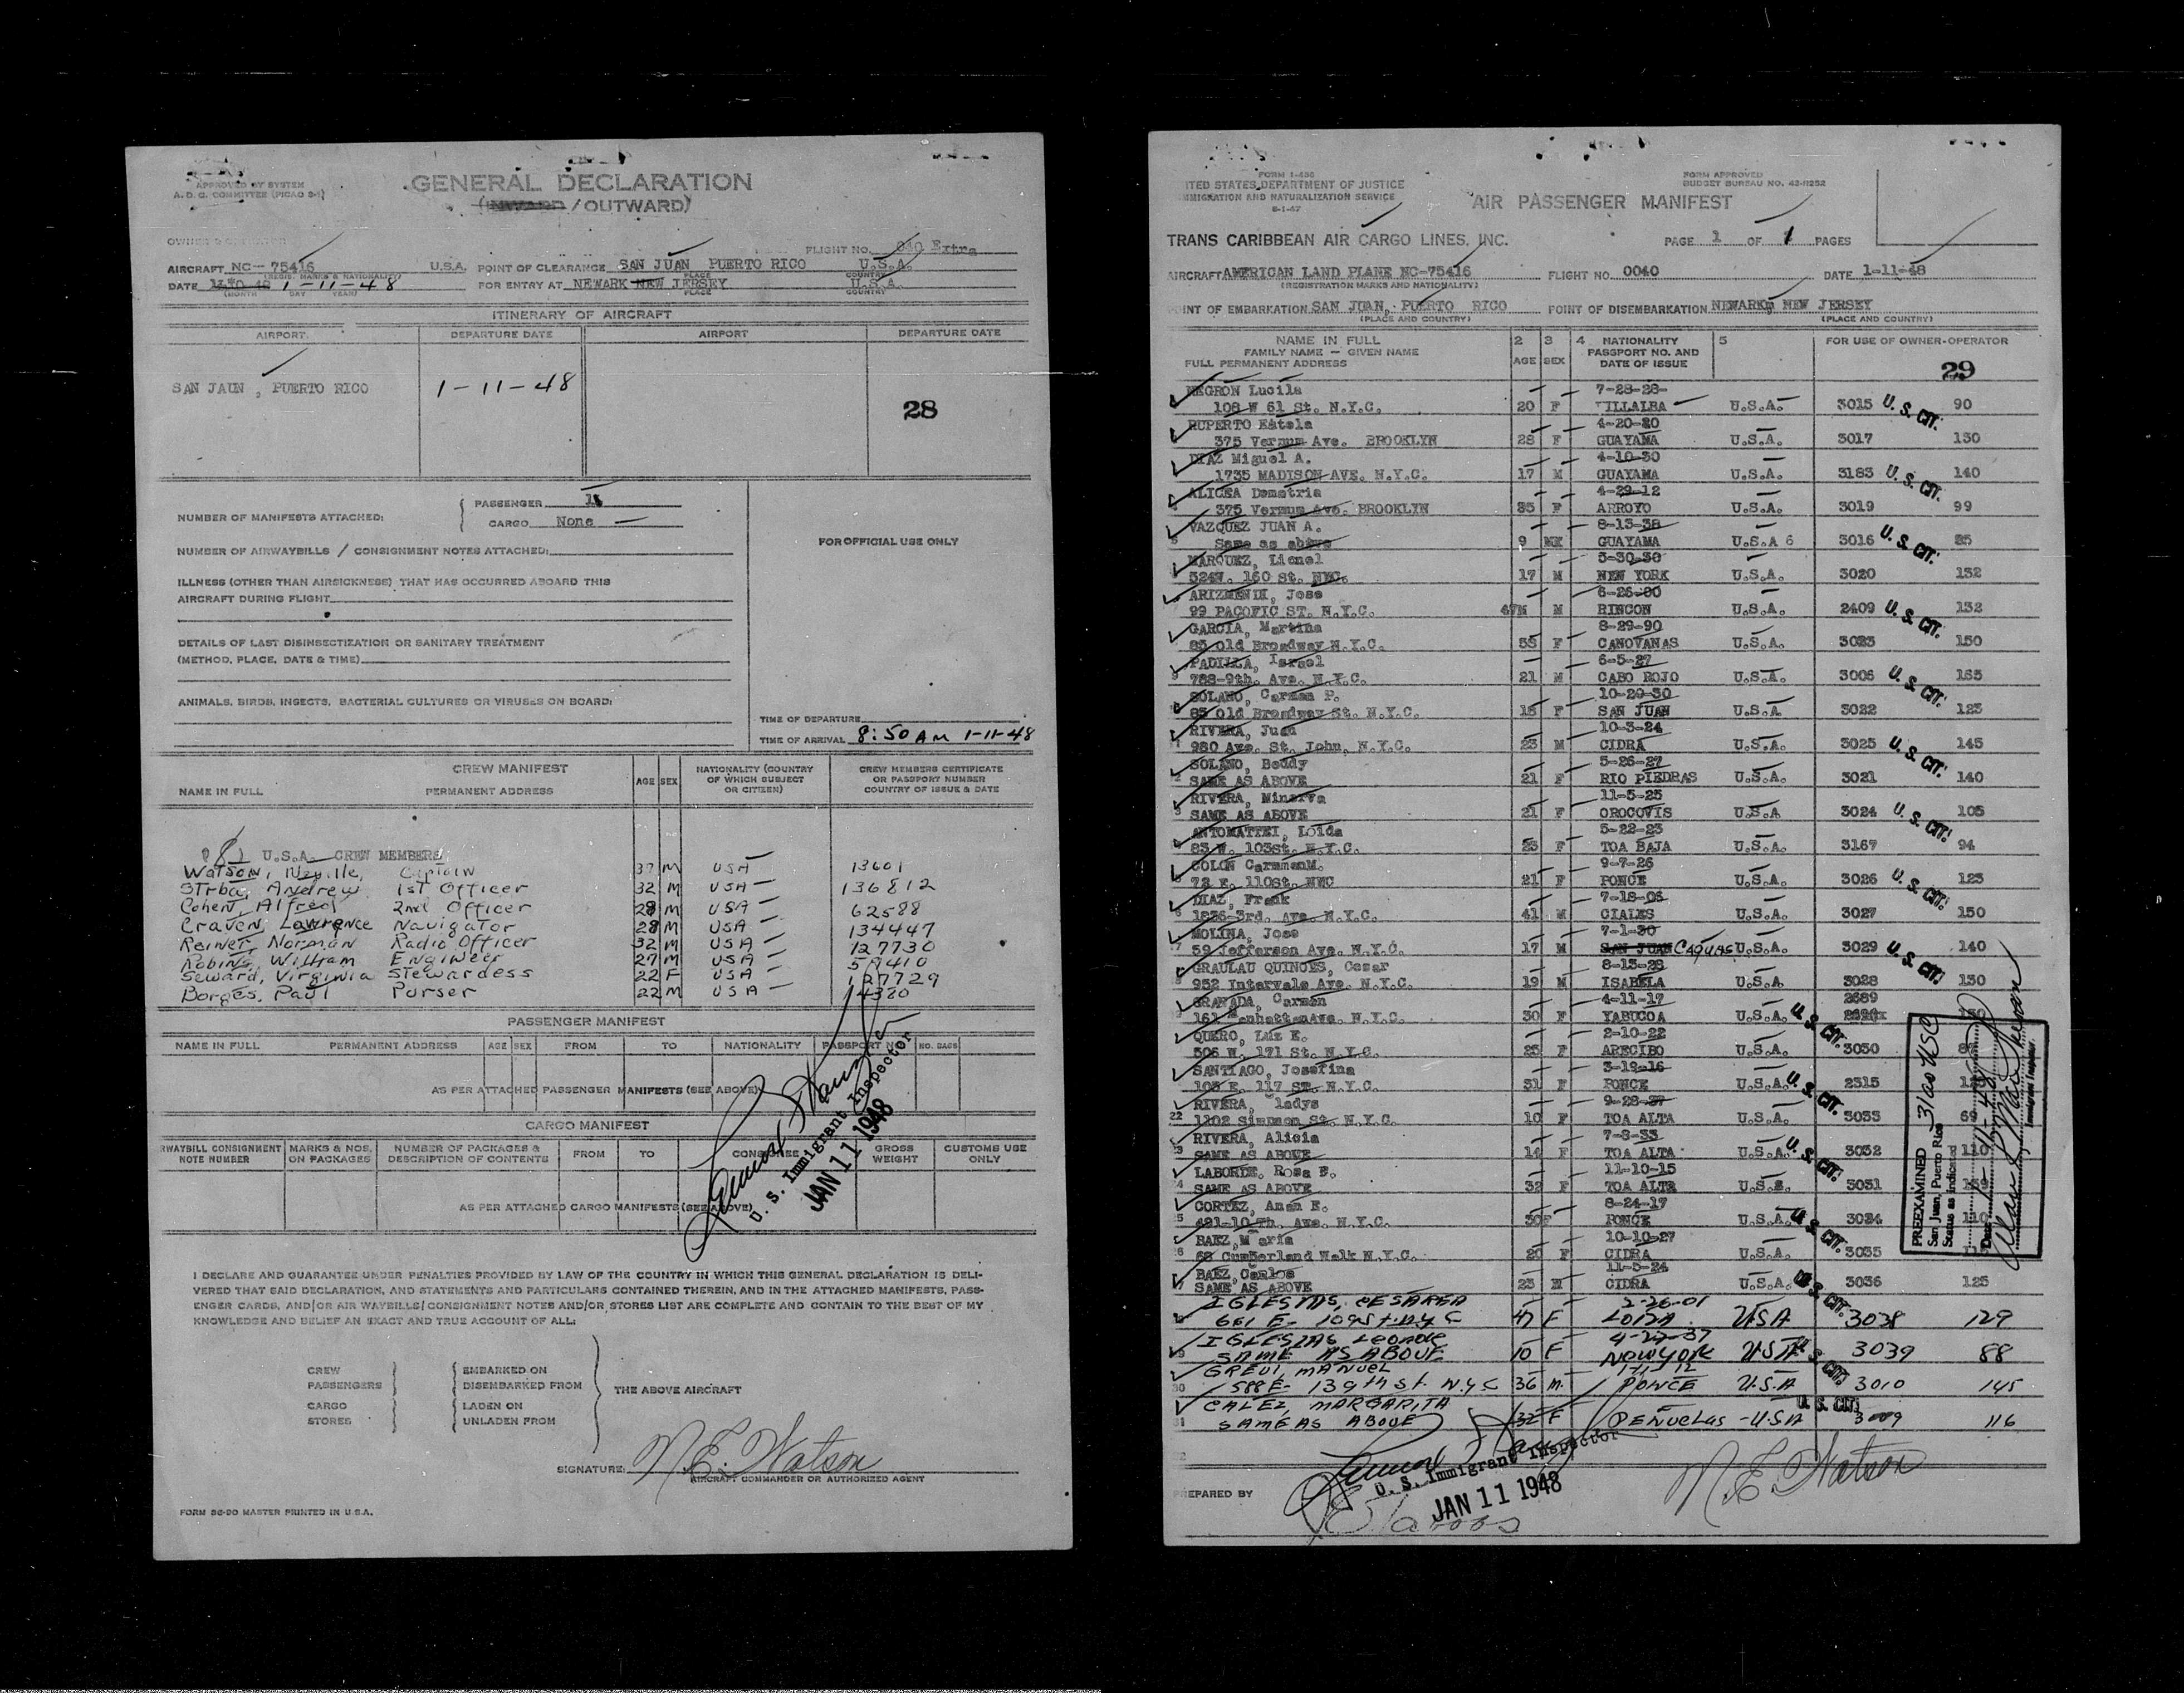 APPROVED BY SYSTEM
A. D. C. COMMITTEE (PICAO S-1)
GENERAL DECLARATION
(INWARD / OUTWARD)
FLIGHT NO. 040 Extra
AIRCRAFT NC- 75416 U.S.A. POINT OF CLEARANCE SAN JUAN PUERTO RICO U.S.A.
(REGIS. MARKS & NATIONALITY) PLACE COUNTRY
DATE 1-11-48 FOR ENTRY AT NEWARK NEW JERSEY U.S.A.
(MONTH DAY YEAR) PLACE COUNTRY
ITINERARY OF AIRCRAFT
AIRPORT DEPARTURE DATE AIRPORT DEPARTURE DATE
SAN JAUN , PUERTO RICO 1-11-48
28
NUMBER OF MANIFESTS ATTACHED: PASSENGER
CARGO None
NUMBER OF AIRWAYBILLS / CONSIGNMENT NOTES ATTACHED:
FOR OFFICIAL USE ONLY
ILLNESS (OTHER THAN AIRSICKNESS) THAT HAS OCCURRED ABOARD THIS
AIRCRAFT DURING FLIGHT
DETAILS OF LAST DISINSECTIZATION OR SANITARY TREATMENT
(METHOD, PLACE, DATE & TIME)
ANIMALS, BIRDS, INSECTS, BACTERIAL CULTURES OR VIRUSES ON BOARD:
TIME OF DEPARTURE
TIME OF ARRIVAL 8:50 AM 1-11-48
CREW MANIFEST
NAME IN FULL PERMANENT ADDRESS AGE SEX NATIONALITY (COUNTRY OF WHICH SUBJECT OR CITIZEN) CREW MEMBERS CERTIFICATE OR PASSPORT NUMBER COUNTRY OF ISSUE & DATE
U.S.A. CREW MEMBERS
Watson, Neville, Captain 37 M USA 13601
Strba, Andrew 1st Officer 32 M USA 136812
Cohen, Alfred 2nd Officer 28 M USA 62588
Craven, Lawrence Navigator 28 M USA 134447
Reiner, Norman Radio Officer 32 M USA 127730
Robins, William Engineer 27 M USA 59410
Seward, Virginia Stewardess 22 F USA 127729
Borges, Paul Purser 22 M USA 14380
PASSENGER MANIFEST
NAME IN FULL PERMANENT ADDRESS AGE SEX FROM TO NATIONALITY PASSPORT NO. BAGS
AS PER ATTACHED PASSENGER MANIFESTS (SEE ABOVE)
CARGO MANIFEST
WAYBILL CONSIGNMENT NOTE NUMBER MARKS & NOS. ON PACKAGES NUMBER OF PACKAGES & DESCRIPTION OF CONTENTS FROM TO CONSIGNEE GROSS WEIGHT CUSTOMS USE ONLY
AS PER ATTACHED CARGO MANIFESTS (SEE ABOVE)
U. S. Immigrant Inspector
JAN 11 1948
I DECLARE AND GUARANTEE UNDER PENALTIES PROVIDED BY LAW OF THE COUNTRY IN WHICH THIS GENERAL DECLARATION IS DELI-
VERED THAT SAID DECLARATION, AND STATEMENTS AND PARTICULARS CONTAINED THEREIN, AND IN THE ATTACHED MANIFESTS, PASS-
ENGER CARDS, AND/OR AIR WAYBILLS/CONSIGNMENT NOTES AND/OR STORES LIST ARE COMPLETE AND CONTAIN TO THE BEST OF MY
KNOWLEDGE AND BELIEF AN EXACT AND TRUE ACCOUNT OF ALL:
CREW EMBARKED ON
PASSENGERS DISEMBARKED FROM THE ABOVE AIRCRAFT
CARGO LADEN ON
STORES UNLADEN FROM
SIGNATURE: N.E. Watson
AIRCRAFT COMMANDER OR AUTHORIZED AGENT
FORM 36-90 MASTER PRINTED IN U.S.A.
FORM I-466
ITED STATES DEPARTMENT OF JUSTICE
MMIGRATION AND NATURALIZATION SERVICE
8-1-47
FORM APPROVED
BUDGET BUREAU NO. 43-R252
AIR PASSENGER MANIFEST
TRANS CARIBBEAN AIR CARGO LINES, INC. PAGE 1 OF 1 PAGES
AIRCRAFT AMERICAN LAND PLANE NC-75416 FLIGHT NO. 0040 DATE 1-11-48
(REGISTRATION MARKS AND NATIONALITY)
OINT OF EMBARKATION SAN JUAN, PUERTO RICO POINT OF DISEMBARKATION NEWARK, NEW JERSEY
(PLACE AND COUNTRY) (PLACE AND COUNTRY)
NAME IN FULL 2 3 4 NATIONALITY 5 FOR USE OF OWNER-OPERATOR
FAMILY NAME - GIVEN NAME AGE SEX PASSPORT NO. AND
FULL PERMANENT ADDRESS DATE OF ISSUE
29
NEGRON Lucila 7-28-28
108 W 61 St. N.Y.C. 20 F VILLALBA U.S.A. 3015 U. S. CIT. 90
RUPERTO Estela 4-20-20
375 Vernum Ave. BROOKLYN 28 F GUAYAMA U.S.A. 3017 130
DIAZ Miguel A. 4-10-30
1735 MADISON AVE. N.Y.C. 17 M GUAYAMA U.S.A. 3183 U. S. CIT. 140
ALICEA Demetria 4-29-12
375 Vernum Ave. BROOKLYN 35 F ARROYO U.S.A. 3019 99
VAZQUEZ JUAN A. 8-13-38
Same as above 9 M GUAYAMA U.S.A 6 3016 U. S. CIT. 85
MARQUEZ, Lionel 5-30-30
524W. 160 St. NYC. 17 M NEW YORK U.S.A. 3020 132
ARIZMENDI, Jose 6-26-00
99 PACOFIC ST. N.Y.C. 47 M RINCON U.S.A. 2409 U. S. CIT. 132
GARCIA, Martina 8-29-90
85 old Broadway N.Y.C. 58 F CANOVANAS U.S.A. 3023 150
PADILLA, Israel 6-5-27
788-9th. Ave. N.Y.C. 21 M CABO ROJO U.S.A. 3006 U. S. CIT. 165
SOLANO, Carmen P. 10-29-30
85 old Broadway St. N.Y.C. 18 F SAN JUAN U.S.A 3022 123
RIVERA, Juan 10-3-24
980 Ave. St. John, N.Y.C. 23 M CIDRA U.S.A. 3025 U. S. CIT. 145
SOLANO, Beddy 5-26-27
SAME AS ABOVE 21 F RIO PIEDRAS U.S.A. 3021 140
RIVERA, Minerva 11-5-25
SAME AS ABOVE 21 F OROCOVIS U.S.A 3024 U. S. CIT. 105
ANTOMATTEI, Loida 5-22-23
83 W. 103st. N.Y.C. 23 F TOA BAJA U.S.A. 3167 94
COLON CarmmenM. 9-7-26
72 E. 110St. NYC 21 F PONCE U.S.A. 3026 U. S. CIT. 123
DIAZ, Frank 7-18-06
1836-3rd. Ave. N.Y.C. 41 M CIALES U.S.A. 3027 150
MOLINA, Jose 7-1-30
59 Jefferson Ave. N.Y.C. 17 M SAN JUAN Caguas U.S.A. 3029 U. S. CIT. 140
GRAULAU QUINOES, Cesar 8-13-28
952 Intervale Ave. N.Y.C. 19 M ISABELA U.S.A 3028 130
GRANADA, Carmen 4-11-17 2689
161 Manhattan Ave. N.Y.C. 30 F YABUCOA U.S.A. U. S. CIT.
QUERO, Luz E. 2-10-22
506 W. 171 St. N.Y.C. 25 F ARECIBO U.S.A. 3030
SANTIAGO, Josefina 3-19-16
103 E. 117 ST. N.Y.C. 31 F PONCE U.S.A. U. S. CIT. 2315
RIVERA, ladys 9-28-37
22 1102 Simpson St. N.Y.C. 10 F TOA ALTA U.S.A. 3033 69
RIVERA, Alicia 7-8-33
SAME AS ABOVE 14 F TOA ALTA U.S.A. U. S. CIT. 3032 110
LABORDE, Rosa B. 11-10-15
SAME AS ABOVE 32 F TOA ALTA 3031
CORTEZ, Anan E. 8-24-17
421-10 Th. Ave. N.Y.C. 30 F PONCE U.S.A. U. S. CIT. 3034 110
BAEZ, Maria 10-10-27
68 Cumberland Walk N.Y.C. 20 F CIDRA U.S.A. 3035
BAEZ, Carlos 11-5-24
SAME AS ABOVE 23 M CIDRA U.S.A. U. S. CIT. 3036 125
IGLESIAS, CESAREA 2-26-01
661 E- 109 St. N.Y.C 47 F LOIZA USA 3038 129
IGLESIAS Leonor 4-27-37
SAME AS ABOVE 10 F NEW YORK USA U. S. CIT. 3039 88
GREUI, MANUEL
30 588 E- 139th St. N.Y.C 36 M. PONCE U.S.A 3010 145
CALEZ, MARGARITA U. S. CIT.
31 SAME AS ABOVE 32 F PEÑUELAS - U.S.A 3009 116
PREEXAMINED
San Juan, Puerto Rico
Status as indicated
31 as USC
Date 1-11-48
Immigrant Inspector.
U. S. Immigrant Inspector
JAN 11 1948
N.E. Watson
REPARED BY